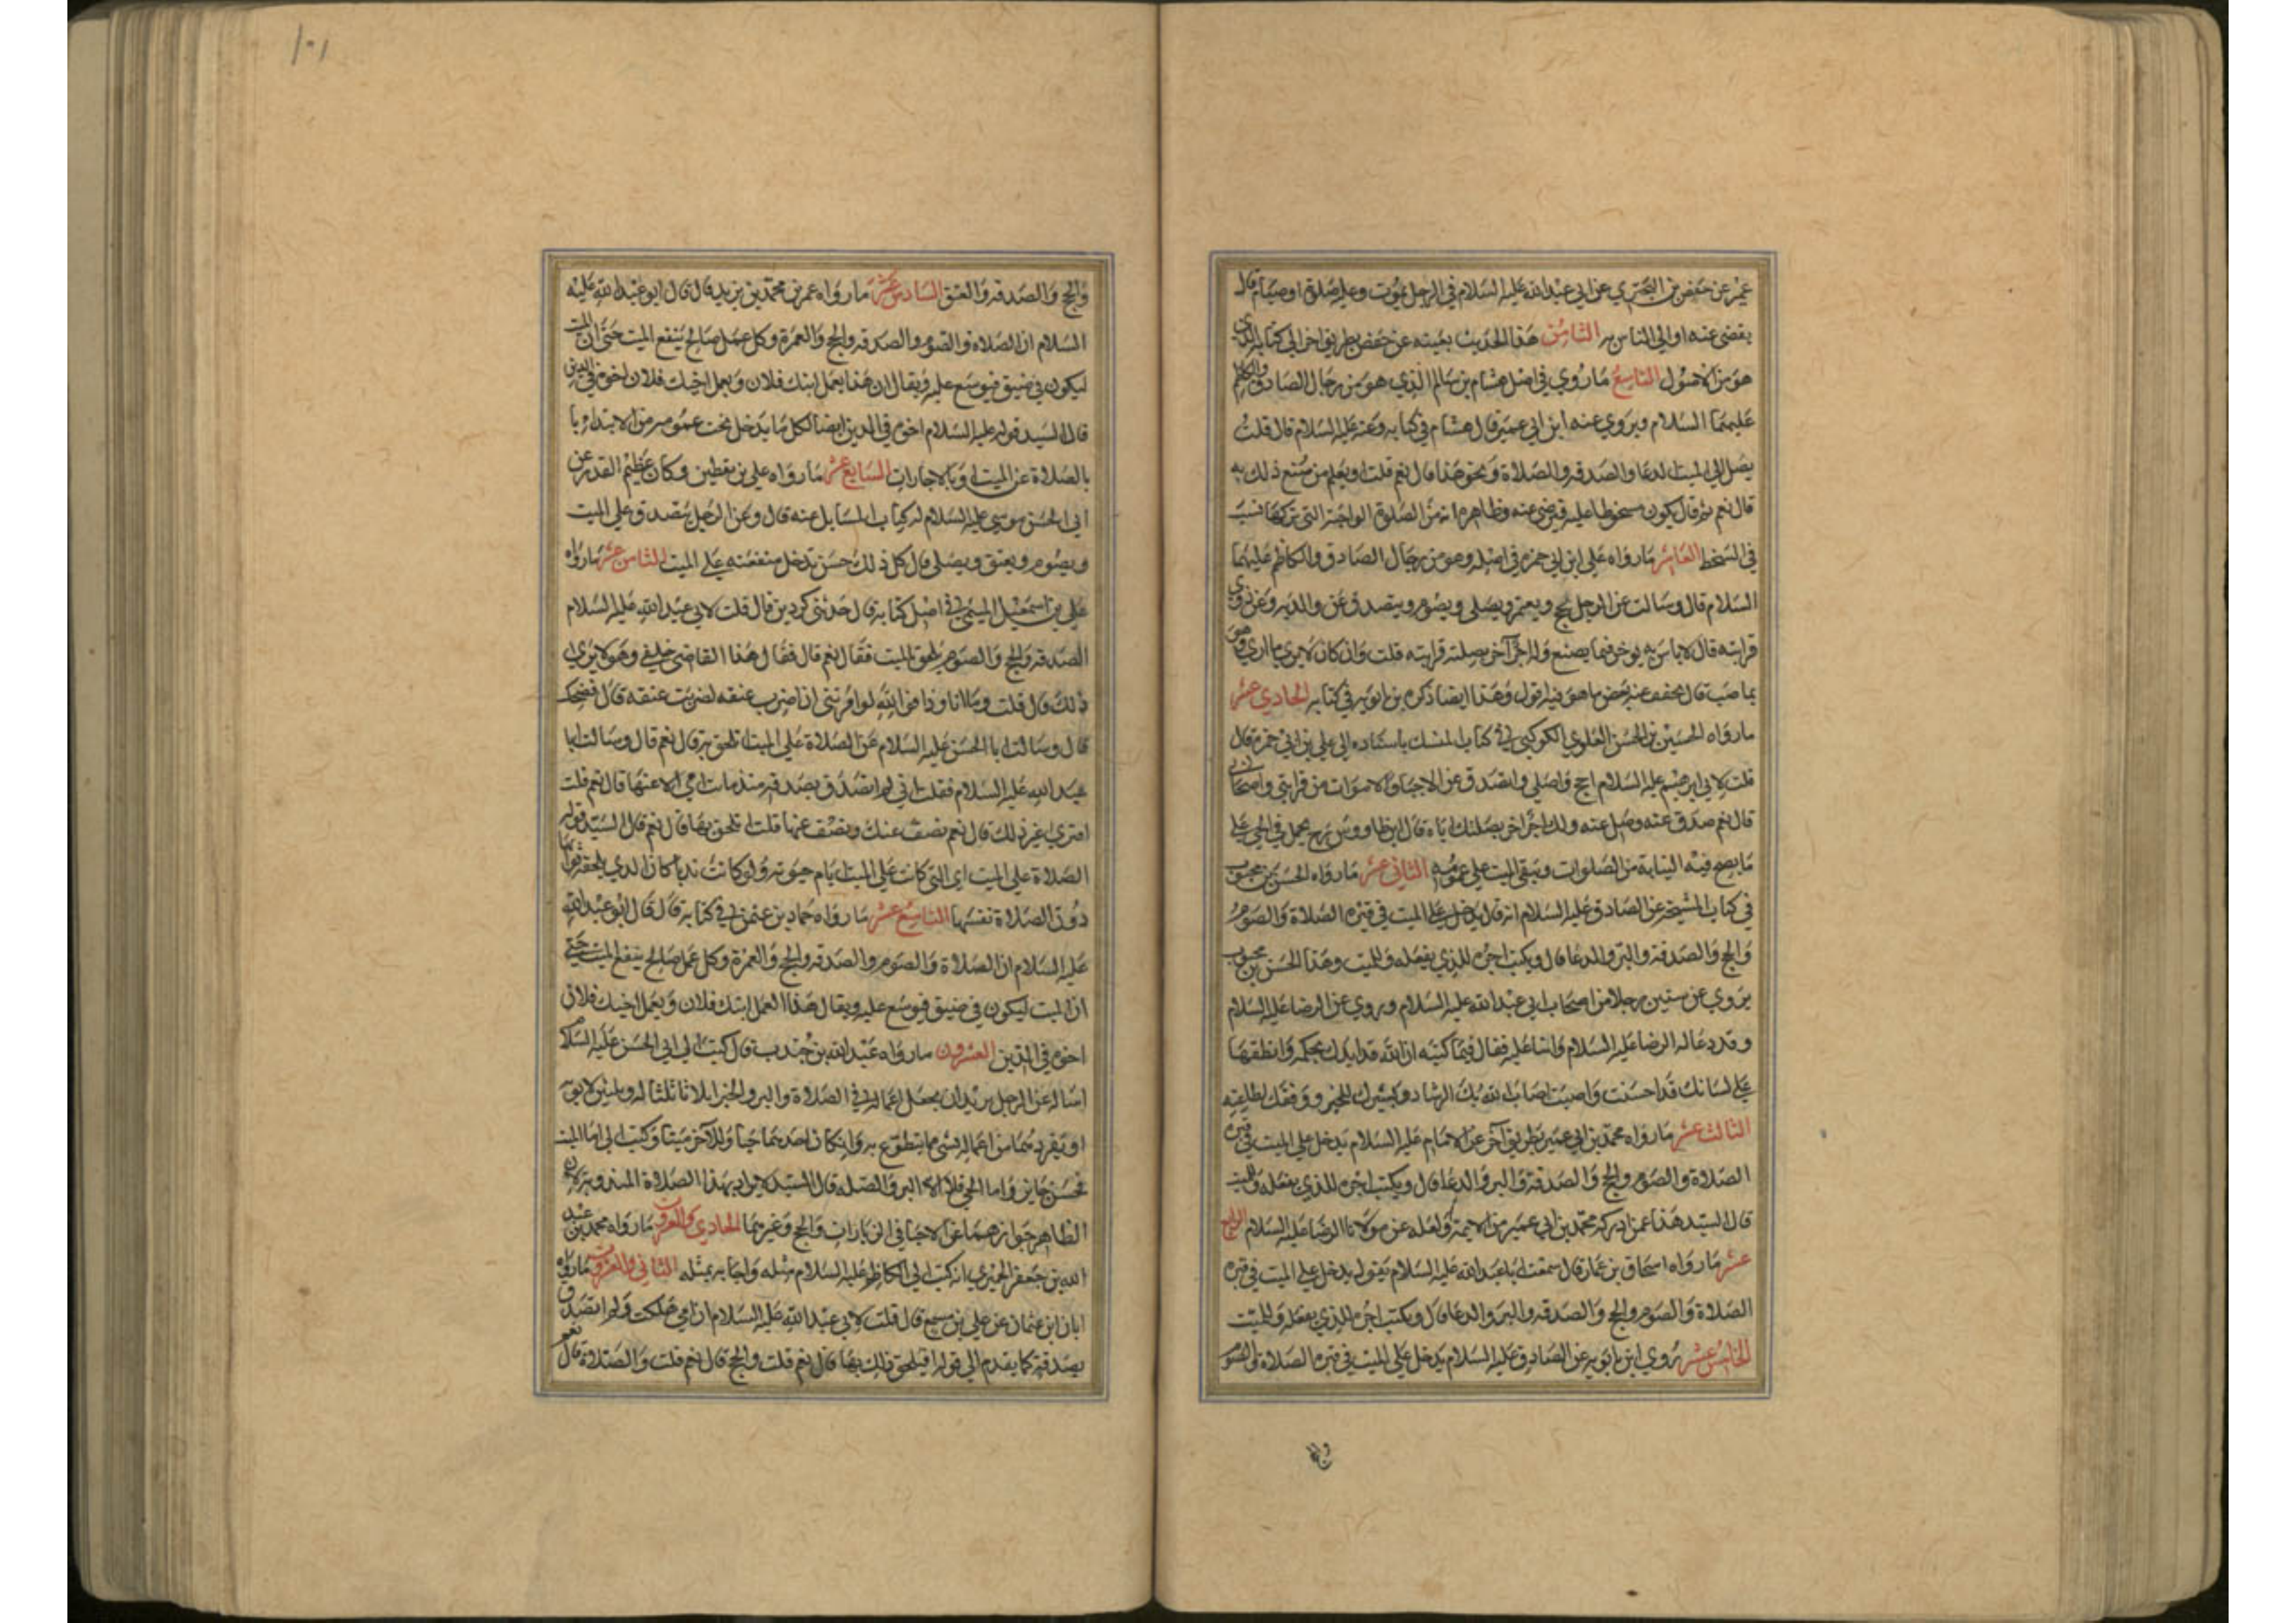 عمير عن حفص بن البختري عن ابي عبد الله عليه السلام في الرجل يموت وعليه صلوة او صيام قال
يقضى عنه اولى الناس به الثامن هذا الحديث بعينه عن حفص بطريق اخر الى كتابه الذي
هو من الاصول التاسع ما روي في اصل هشام بن سالم الذي هو من رجال الصادق والكاظم
عليهما السلام ويروي عنه ابن ابي عمير قال هشام في كتابه وعنه عليه السلام قال قلت
يصل الى الميت الدعا والصدقه والصلاة ونحو هذا قال نعم قلت او يعلم من صنع ذلك به
قال نعم ثم قال يكون مسخوطا عليه فيرضى عنه وظاهره انه من الصلوة الواجبة التي تركها سبب
في السخط العاشر ما رواه علي ابن ابي حمزه في اصله وهو من رجال الصادق والكاظم عليهما
السلام قال وسالت عن الرجل يحج ويعتمر ويصلي ويصوم ويتصدق عن والديه وعن ذوي
قرابته قال لا باس به يوجر فيما يصنع وله اجر آخر بصلته قرابته قلت وان كان لا يرى ما ارى وهو
ناصب قال يخفف عنه بعض ما هو فيه اقول وهذا ايضا ذكره بن بابويه في كتابه الحادي عشر
ما رواه الحسين بن الحسن العلوي الكوكبي في كتاب المنسك باسناده الى علي بن ابي حمزه قال
قلت لابي ابرهيم عليه السلام احج واصلي واتصدق عن الاحيا والاموات من قرابتي واصحابي
قال نعم صدق عنه وصل عنه ولك اجر اخر بصلتك اياه قال ابن طاووس ره يحمل في الحي على
ما يصح فيه النيابة من الصلوات ويبقى الميت على عمومه الثاني عشر ما رواه الحسن بن محبوب
في كتاب المشيخه عن الصادق عليه السلام انه قال يدخل على الميت في قبره الصلاة والصوم
والحج والصدقه والبر والدعا قال ويكتب اجره للذي يفعله وللميت وهذا الحسن بن محبوب
يروي عن ستين رجلا من اصحاب ابي عبد الله عليه السلام وروي عن الرضا عليه السلام
وقد دعا له الرضا عليه السلام واثنا عليه فقال فيما كتبه ان الله قد ايدك بحكمه وانطقها
على لسانك قد احسنت واصبت اصاب الله بك الرشاد ويسرك للخير ووفقك لطاعته
الثالث عشر ما رواه محمد بن ابي عمير بطريق آخر عن الامام عليه السلام يدخل على الميت في قبره
الصلاة والصوم والحج والصدقه والبر والدعا قال ويكتب اجره للذي يفعله وللميت
قال السيد هذا عمن ادركه محمد بن ابي عمير من الايمة ولعله عن مولانا الرضا عليه السلام الرابع
عشر ما رواه اسحاق بن عمار قال سمعت ابا عبد الله عليه السلام يقول يدخل على الميت في قبره
الصلاة والصوم والحج والصدقه والبر والدعا قال ويكتب اجره للذي يفعله وللميت
الخامس عشر روي ابن بابويه عن الصادق عليه السلام يدخل على الميت في قبره الصلاة والصوم
١٠١
والحج والصدقه والعتق السادس عشر ما رواه عمر بن محمد بن يزيد قال قال ابو عبد الله عليه
السلام ان الصلاة والصوم والصدقه والحج والعمرة وكل عمل صالح ينفع الميت حتى ان الميت
ليكون في ضيق فيوسع عليه ويقال ان هذا بعمل ابنك فلان وبعمل اخيك فلان اخوه في الدين
قال السيد قوله عليه السلام اخوه في الدين ايضا لكل ما يدخل تحت عمومه من الابتداء با
بالصلاة عن الميت او بالاجارات السابع عشر ما رواه علي بن يقطين وكان عظيم القدر عن
ابي الحسن موسى عليه السلام له كتاب المسايل عنه قال وعن الرجل يتصدق على الميت
ويصوم ويعتق ويصلي قال كل ذلك حسن تدخل منفعته على الميت الثامن عشر ما رواه
علي بن اسمعيل الميثمي في اصل كتابه قال حدثني كردين قال قلت لابي عبد الله عليه السلام
الصدقه والحج والصوم يلحق الميت فقال نعم قال فقال هذا القاضي خلفي وهو لا يرى
ذلك قال قلت وما انا وذا فوالله لو امرتني ان اضرب عنقه لضربت عنقه قال فضحك
قال وسالت ابا الحسن عليه السلام عن الصلاة على الميت اتلحق به قال نعم قال وسالت ابا
عبد الله عليه السلام فقلت اني لم اتصدق بصدقه منذ ماتت امي الا عنها قال نعم قلت
افترى غير ذلك قال نعم نصف عنك ونصف عنها قلت اتلحق بها قال نعم قال السيد قوله
الصلاة على الميت اى التي كانت على الميت ايام حيوته ولو كانت ندبا كان الذي يلحقه ثوابها
دون الصلاة نفسها التاسع عشر ما رواه حماد بن عثمن في كتابه قال قال ابو عبد الله
عليه السلام ان الصلاة والصوم والصدقه والحج والعمرة وكل عمل صالح ينفع الميت حتى
ان الميت ليكون في ضيق فيوسع عليه ويقال هذا العمل ابنك فلان وبعمل اخيك فلان
اخوه في الدين العشرون ما رواه عبد الله بن جندب قال كتبت الى ابي الحسن عليه السلام
اساله عن الرجل يريد ان يجعل اعماله في الصلاة والبر والخير اثلاثا ثلثا له وثلثين لابويه
او يفردهما من اعماله بشي مما يتطوع به وان كان احدهما حيا والآخر ميتا وكتب الي اما الميت
فحسن جايز واما الحي فلا الا البر والصله قال السيد لا يراد بهذا الصلاة المندوبه لان
الظاهر جوازهما عن الاحيا في الزيارات والحج وغيرهما الحادي والعشرون ما رواه محمد بن عبد
الله بن جعفر الحميري انه كتب الى الكاظم عليه السلام مثله واجابه بمثله الثاني والعشرون ما رواه
ابان ابن عثمان عن علي بن مسمع قال قلت لابي عبد الله عليه السلام ان امي هلكت ولم اتصدق
بصدقه كما يقدم الى قوله افيلحق ذلك بها قال نعم قلت والحج قال نعم قلت والصلاة قال نعم